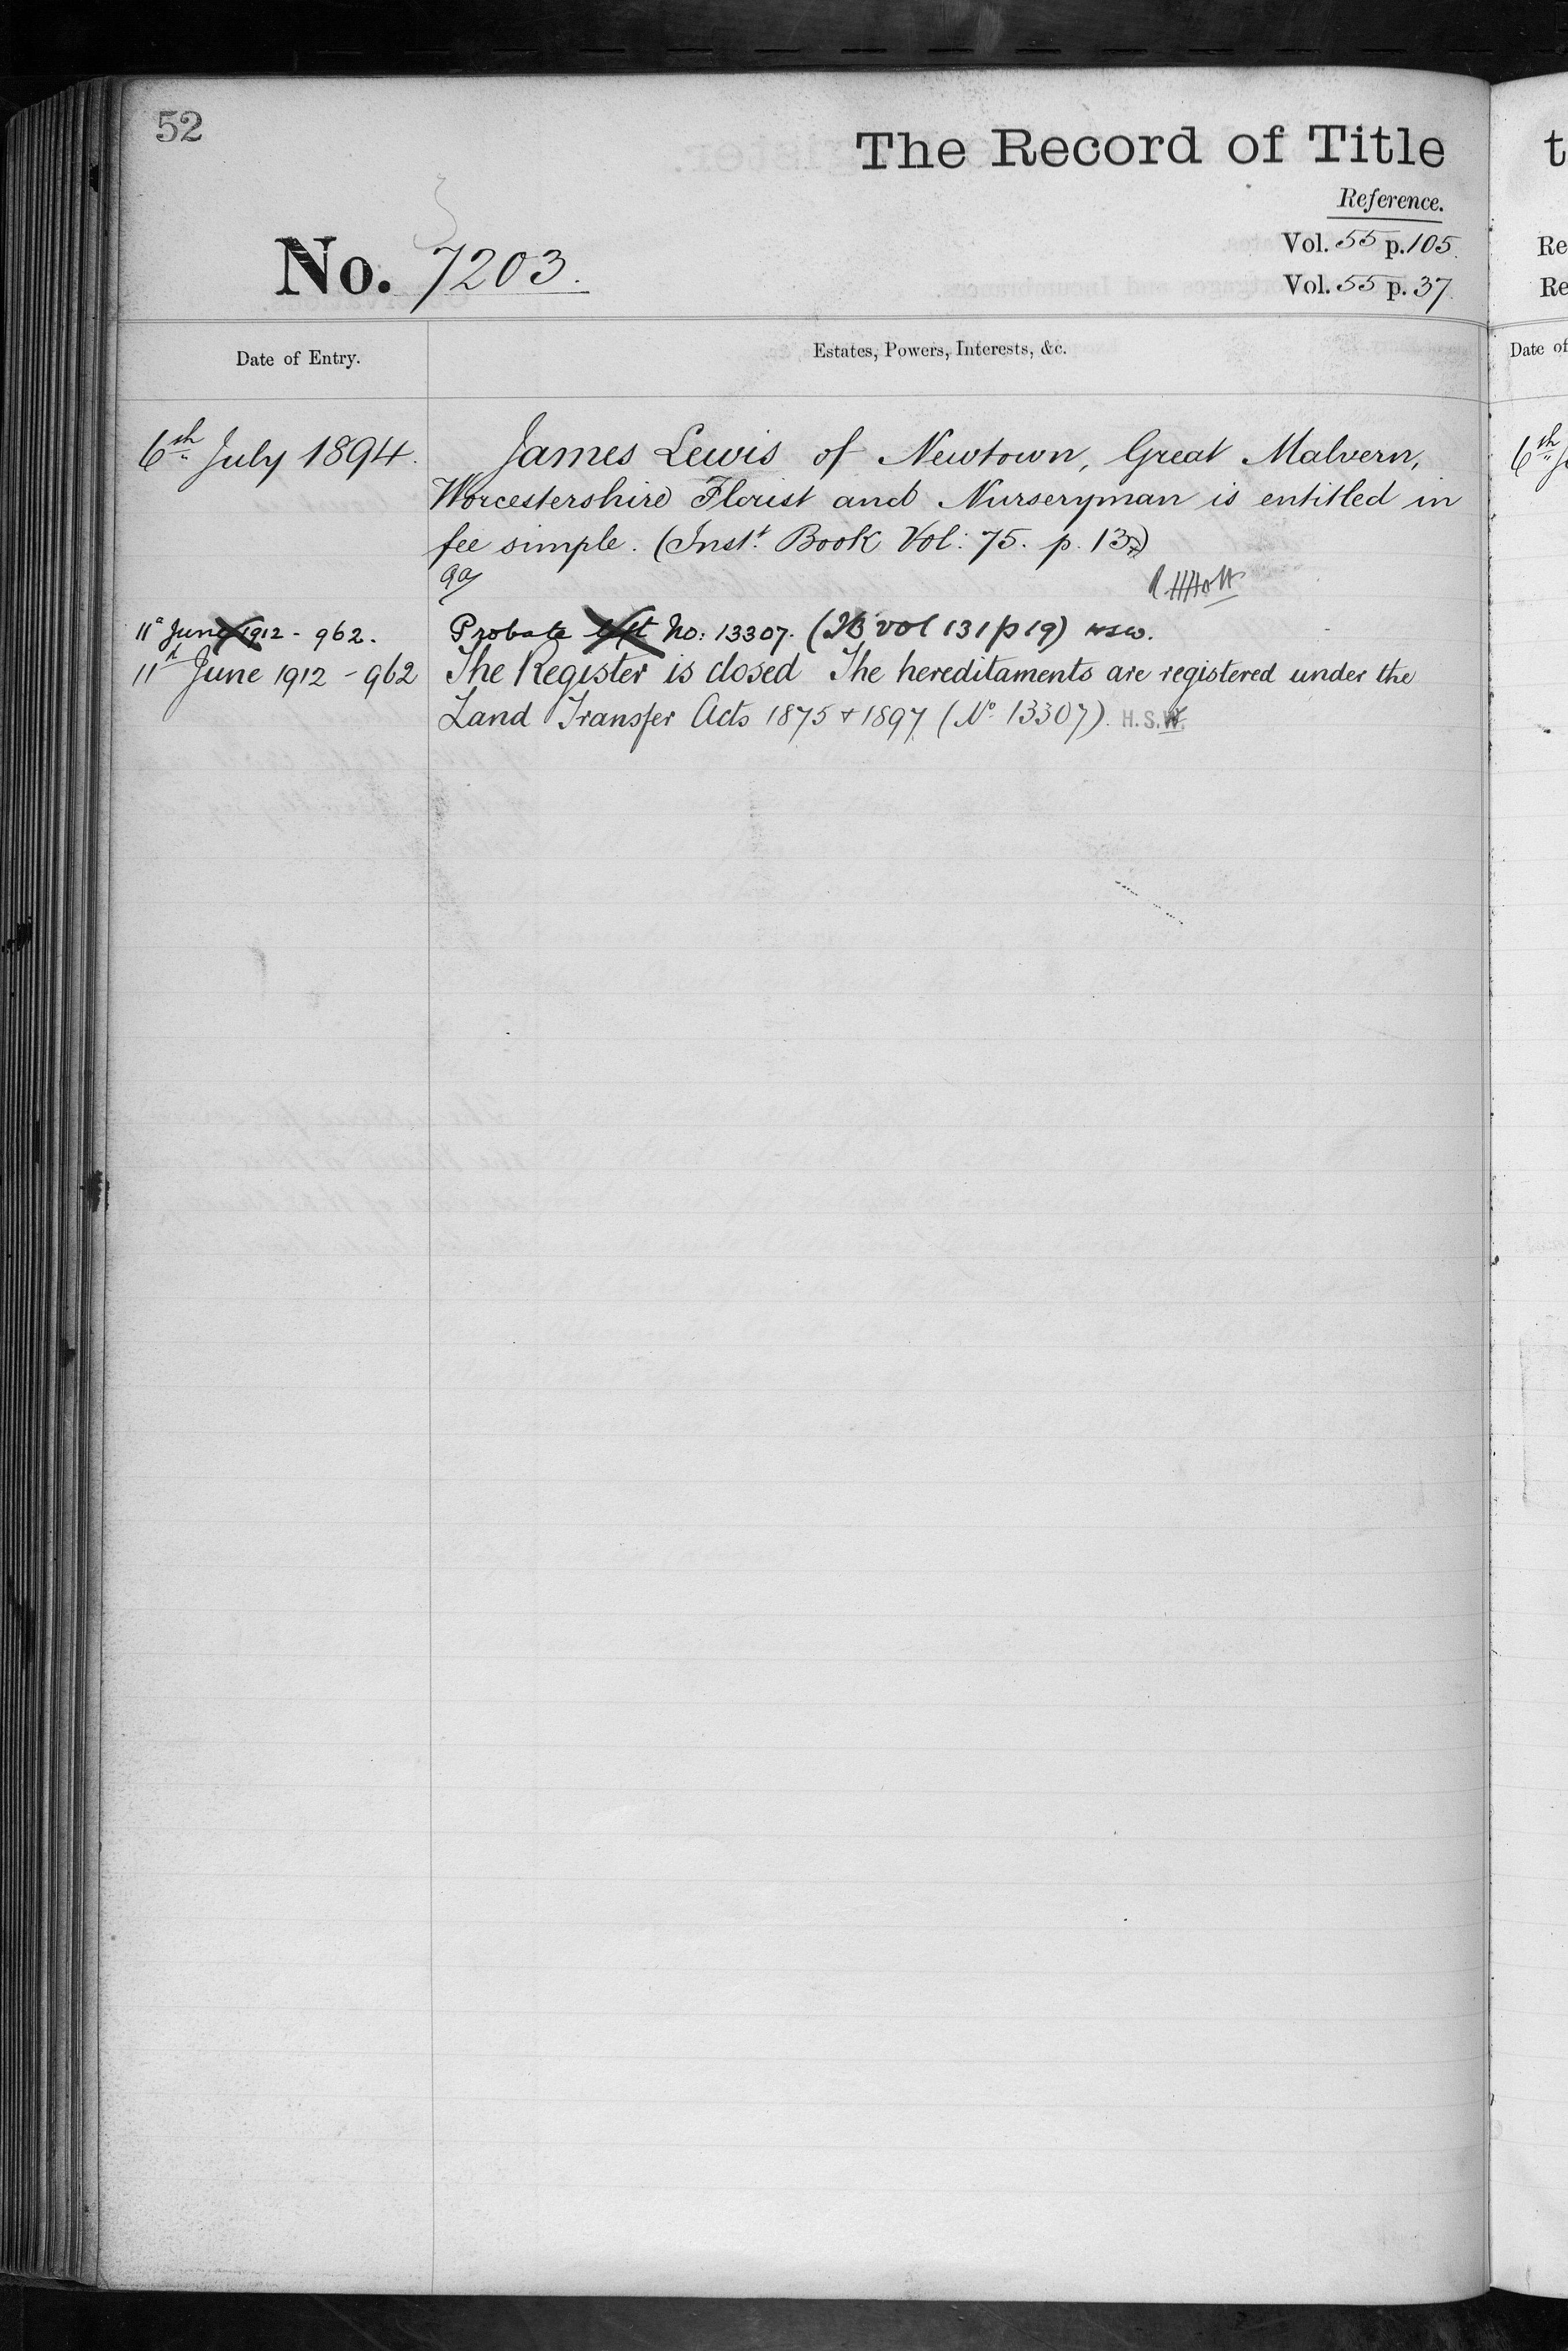 52
The Record of Title
Reference.
No. 7203.
Vol. 55 p. 105.
Vol. 55 p. 37.
Date of Entry.
Estates, Powers, Interests, &c.
6th July 1894.
James Lewis of Newtown, Great Malvern,
Worcestershire Florist and Nurseryman is entitled in
fee simple. (Inst. Book Vol: 75. p. 137)
11th June 1912 - 962.
Probate No: 13307. (IB vol 131 p 19) HSW.
11th June 1912 - 962
The Register is closed The hereditaments are registered under the
Land Transfer Acts 1875 & 1897 (No. 13307). H.S.W.
t
Re
Re
Date of
6th J